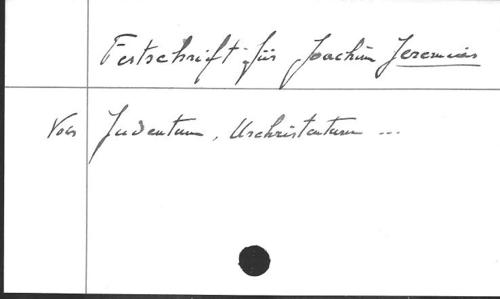 Festschrift für Joachim Jeremias
Judentum, Urchristentum ...